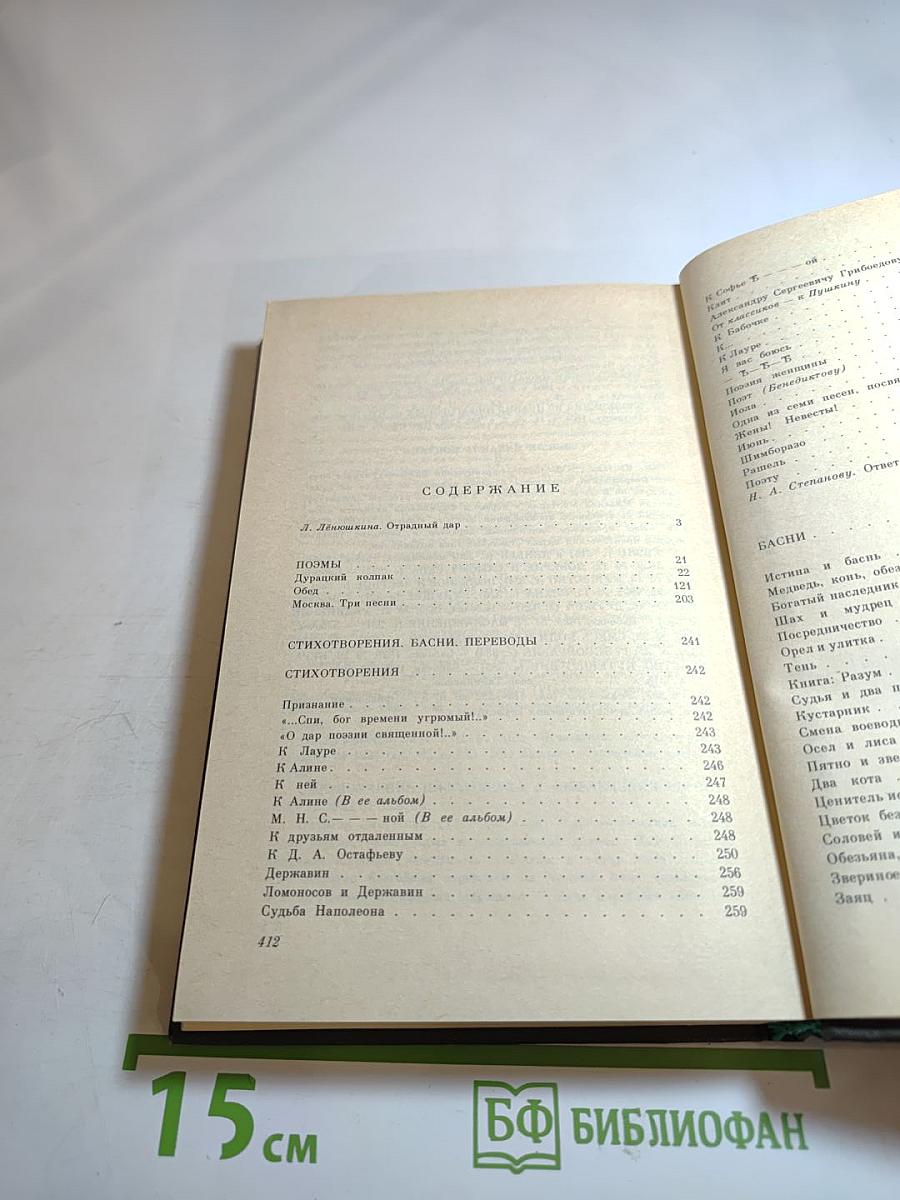 СОДЕРЖАНИЕ
Л. Лёнюшкина. Отрадный дар . . . . . . . . . . 3
ПОЭМЫ . . . . . . . . . . 21
Дурацкий колпак . . . . . . . . . . 22
Обед . . . . . . . . . . 121
Москва. Три песни . . . . . . . . . . 203
СТИХОТВОРЕНИЯ. БАСНИ. ПЕРЕВОДЫ . . . . . . . . . . 241
СТИХОТВОРЕНИЯ . . . . . . . . . . 242
Признание . . . . . . . . . . 242
«...Спи, бог времени угрюмый!..» . . . . . . . . . . 242
«О дар поэзии священной!..» . . . . . . . . . . 243
К Лауре . . . . . . . . . . 243
К Алине . . . . . . . . . . 246
К ней . . . . . . . . . . 247
К Алине (В ее альбом) . . . . . . . . . . 248
М. Н. С.— — — ной (В ее альбом) . . . . . . . . . . 248
К друзьям отдаленным . . . . . . . . . . 248
К Д. А. Остафьеву . . . . . . . . . . 250
Державин . . . . . . . . . . 256
Ломоносов и Державин . . . . . . . . . . 259
Судьба Наполеона . . . . . . . . . . 259
412
К Софье Ѣ — — — ой . . .
Кант . . .
Александру Сергеевичу Грибоедову
От классиков — к Пушкину . . .
К Бабочке . . .
К... . . .
К Лауре . . .
Я вас боюсь . . .
— Ѣ—Ѣ—Ѣ . . .
Поэзия женщины . . .
Поэт (Бенедиктову) . . .
Иола . . .
Одна из семи песен,
Жены! Невесты! . . .
Июнь . . .
Шимборазо . . .
Рашель . . .
Поэту . . .
Н. А. Степанову. Ответ
БАСНИ . . .
Истина и баснь . . .
Медведь, конь,
Богатый наследник
Шах и мудрец . . .
Посредничество . . .
Орел и улитка . . .
Тень . . .
Книга: Разум . . .
Судья и два
Кустарник . . .
Смена
Осел и лиса
Пятно и
Два кота . . .
Ценитель
Цветок
Соловей и
Обезьяна,
Звериное
Заяц . . .
15 см
БФ БИБЛИОФАН